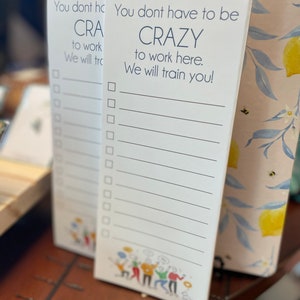 You dont have to be
CRAZY
to work here.
We will train you!
You dont have
CRA
to work
We will train